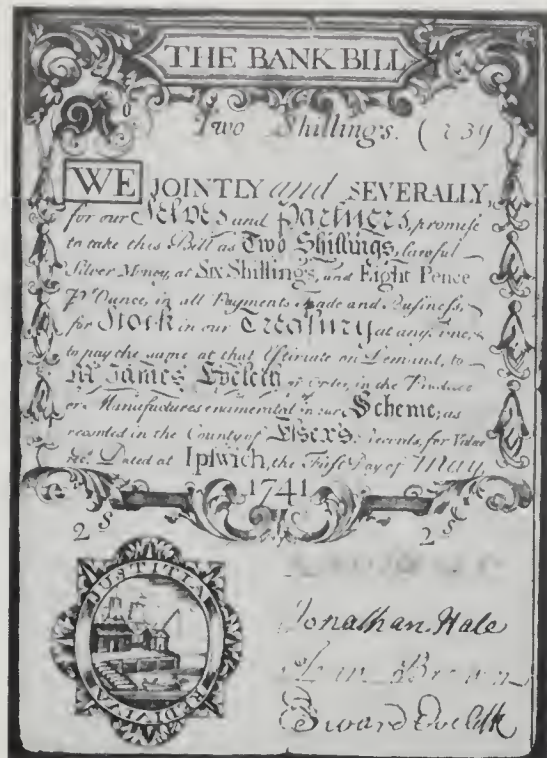 THE BANK BILL
Two Shillings. (
WE JOINTLY and SEVERALLY,
for our Selves and Partners, promise
to take this Bill as Two Shillings, lawful
Silver Money, at Six Shillings, and Eight Pence
Pr Ounce, in all Payments Trade and Business,
for Stock in our Treasury at any Time,
to pay the same at that Estimate on Demand, to
Mr James Eveleth or Order, in the Produce
or Manufactures enumerated in our Scheme; as
recorded in the County of Essex's Records, for Value
recd Dated at Ipswich, the First Day of May,
1741
2 s 2 s
JUSTITIA
REDIVIVA
Jonathan Hale
Brown
Edward Eveleth